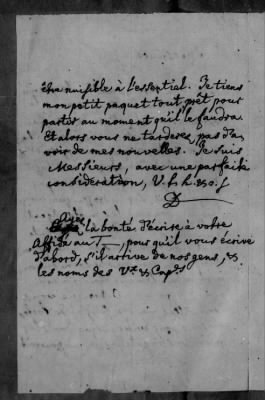 être nuisible à l'essentiel. Je tiens
mon petit paquet tout prêt pour
partir au moment qu'il le faudra.
Et alors vous ne tarderez pas d'a-
voir de mes nouvelles. Je suis
Messieurs, avec une parfaite
consideration, V. t. h. &o. s
D
Ayez la bonté d'écrire à votre
Affidé au T—, pour qu'il vous écrive
d'abord, s'il arrive de nos gens, &
les noms des Vx & Cap.s